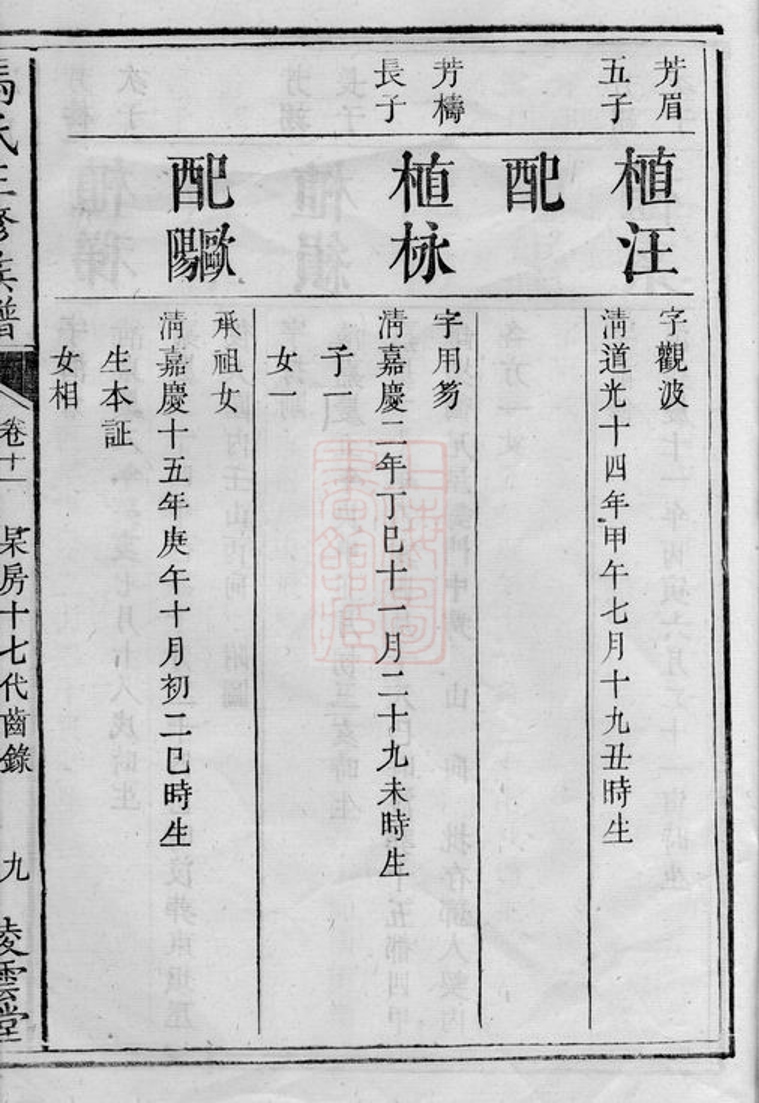 芳眉
五子
植汪
字觀波
清道光十四年甲午七月十九丑時生
配
芳檮
長子
植栐
字用笏
清嘉慶二年丁巳十一月二十九未時生
子一
女一
配歐陽
承祖女
清嘉慶十五年庚午十月初二巳時生
生本証
女相
氏三修族譜
卷十一
杲房十七代齒錄
九
凌雲堂